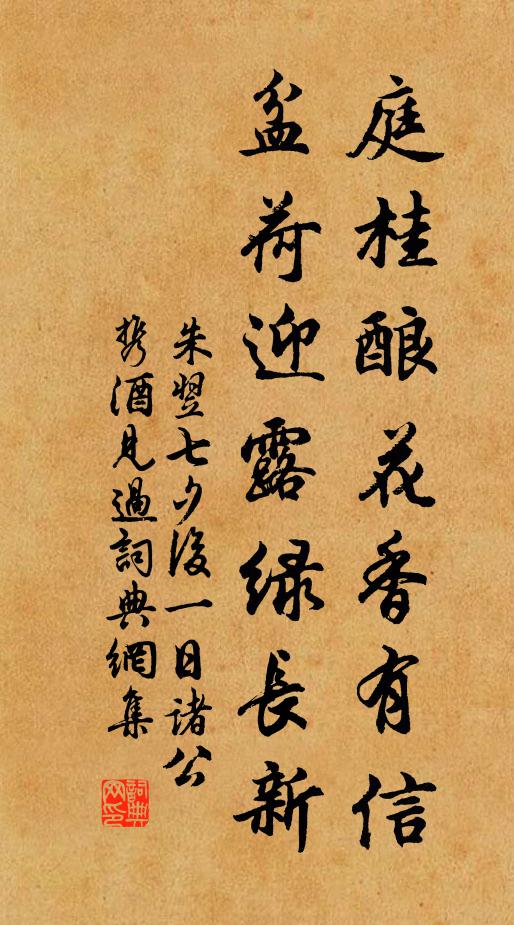 庭桂酿花香有信
盆荷迎露绿長新
朱翌七夕後一日諸公
携酒見過詞典網集
詞典網印